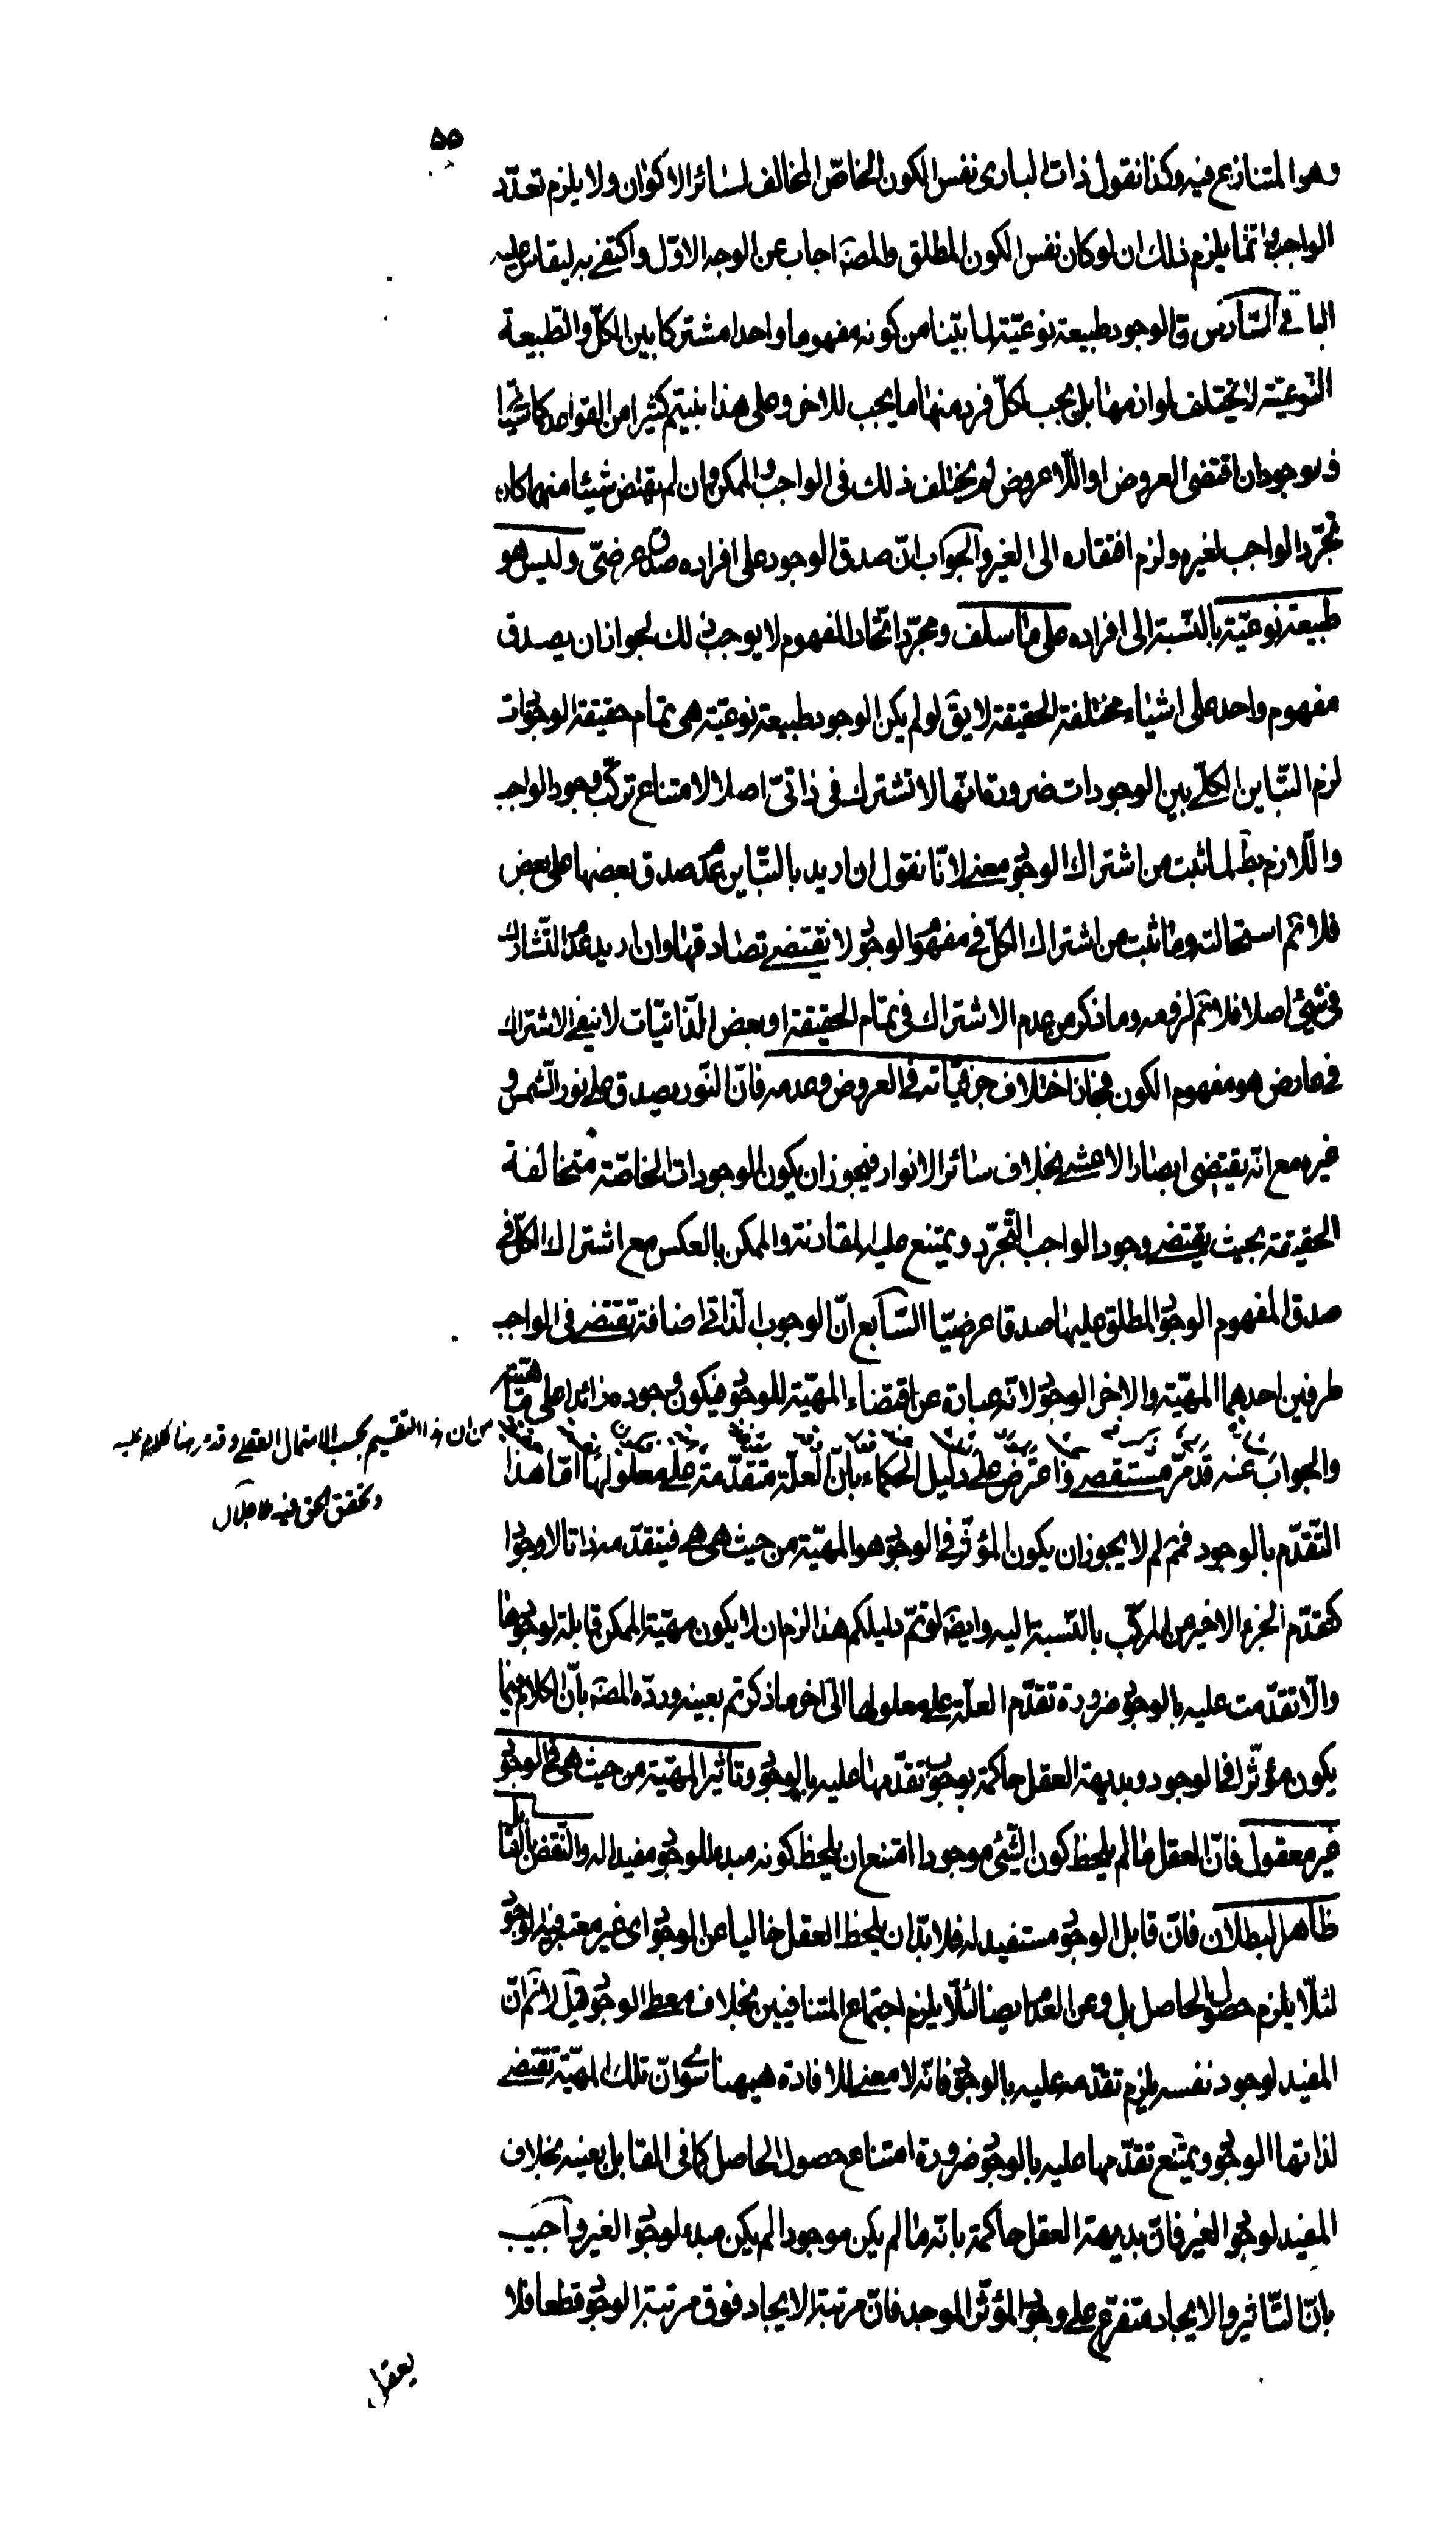 ۵۵
وهو المتنازع فيه وكذا نقول ذات البارى نفس الكون الخاصّ المخالف لسائر الاكوان ولا يلزم تعدّد
الواجب وانّما يلزم ذلك ان لو كان نفس الكون المطلق والمصَ اجاب عن الوجه الاوّل واكتفى به ليقاس عليه
الباقى السّادس انّ الوجود طبيعة نوعيّة لما بيّنا من كونه مفهوما واحدا مشتركا بين الكلّ والطّبيعة
النّوعيّة لا يختلف لوازمها بل يجب لكلّ فرد منها ما يجب للاخر وعلى هذا بنيتم كثيرا من القواعد كما سيأتى
فالوجود ان اقتضى العروض او اللّاعروض لم يختلف ذلك فى الواجب والممكن وان لم يقتض شيئا منهما كان
تجرّد الواجب لغيره ولزم افتقاره الى الغير والجواب انّ صدق الوجود على افراده صدق عرضىّ وليس هو
طبيعة نوعيّة بالنّسبة الى افراده على ما سلف ومجرّد اتّحاد المفهوم لا يوجب ذلك لجواز ان يصدق
مفهوم واحد على اشياء مختلفة الحقيقة لا يقَ لو لم يكن الوجود طبيعة نوعيّة هى تمام حقيقة الوجودات
لزم التّباين الكلّى بين الوجودات ضرورة انّها لا تشترك فى ذاتىّ اصلا لامتناع تركّب وجود الواجب
واللّازم بطَ لما ثبت من اشتراك الوجود معنى لانّا نقول ان اريد بالتّباين عدم صدق بعضها على بعض
فلا نم استحالته وما ثبت من اشتراك الكلّ فى مفهوم الوجود لا يقتضى تصادقها وان اريد عدم التّشارك
فى شىء اصلا فلا نم لزومه وما ذكر من عدم الاشتراك فى تمام الحقيقة او بعض الذّاتيّات لا ينفى الاشتراك
فى عارض هو مفهوم الكون فجاز اختلاف جزئيّاته فى العروض وعدمه فانّ النّور يصدق على نور الشّمس و
غيره مع انّه يقتضى ابصار الاعشى بخلاف سائر الانوار فيجوز ان يكون الوجودات الخاصّة متخالفة
الحقيقة بحيث يقتضى وجود الواجب التّجرّد ويمتنع عليه المقارنة والممكن بالعكس مع اشتراك الكلّ فى
صدق المفهوم الوجود المطلق عليها صدقا عرضيّا السّابع انّ الوجوب الذّاتى اضافة تقتضى فى الواجب
طرفين احدهما المهيّة والاخر الوجود لانّه عبارة عن اقتضاء المهيّة للوجود فيكون وجوده زائدا على مهيّته
والجواب عنه قد مرّ مستقصى واعترض على دليل الحكماء بانّ العلّة متقدّمة على معلولها امّا هذا
من ان هذا التقسيم بحسب الاحتمال العقلى وقد مر منا كلام عليه
وتحقق الحق فيه ملا جلال
التّقدّم بالوجود فمم لم لا يجوز ان يكون المؤثّر فى الوجود هو المهيّة من حيث هى هى فيتقدّمه ذاتا لا وجودا
كتقدّم الجزء الاخير من المركّب بالنّسبة اليه وايضَ لو تمّ دليلكم هذا لزم ان لا يكون مهيّة الممكن قابلة لوجودها
والّا تقدّمت عليه بالوجود ضرورة تقدّم العلّة على معلولها الى اخر ما ذكرتم بعينه وردّه المصَ بانّ الكلام فيما
يكون مؤثّرا فى الوجود وبديهة العقل حاكمة بوجوب تقدّمها عليه بالوجود وتاثير المهيّة من حيث هى فى الوجود
غير معقول فانّ العقل ما لم يلحظ كون الشّىء موجودا امتنع ان يلحظ كونه مبدء للوجود مفيدا له والنّقض بالقابل
ظاهر البطلان فانّ قابل الوجود مستفيد له فلا بدّ ان يلحظ العقل خاليا عن الوجود اى غير معتبر فيه الوجود
لئلّا يلزم حصول الحاصل بل وعن العدم ايضا لئلّا يلزم اجتماع المتنافيين بخلاف معطى الوجود قيل لا نم انّ
المفيد لوجود نفسه يلزم تقدّمه عليه بالوجود فانّه لا معنى للافادة هيهنا سوى انّ تلك المهيّة تقتضى
لذاتها الوجود ويمتنع تقدّمها عليه بالوجود ضرورة امتناع حصول الحاصل كما فى القابل بعينه بخلاف
المفيد لوجود الغير فانّ بديهة العقل حاكمة بانّه ما لم يكن موجودا لم يكن مبدء لوجود الغير واجيب
بانّ التّاثير والايجاد متفرّع على وجود المؤثّر الموجد فانّ مرتبة الايجاد فوق مرتبة الوجود قطعا فلا
يعقل